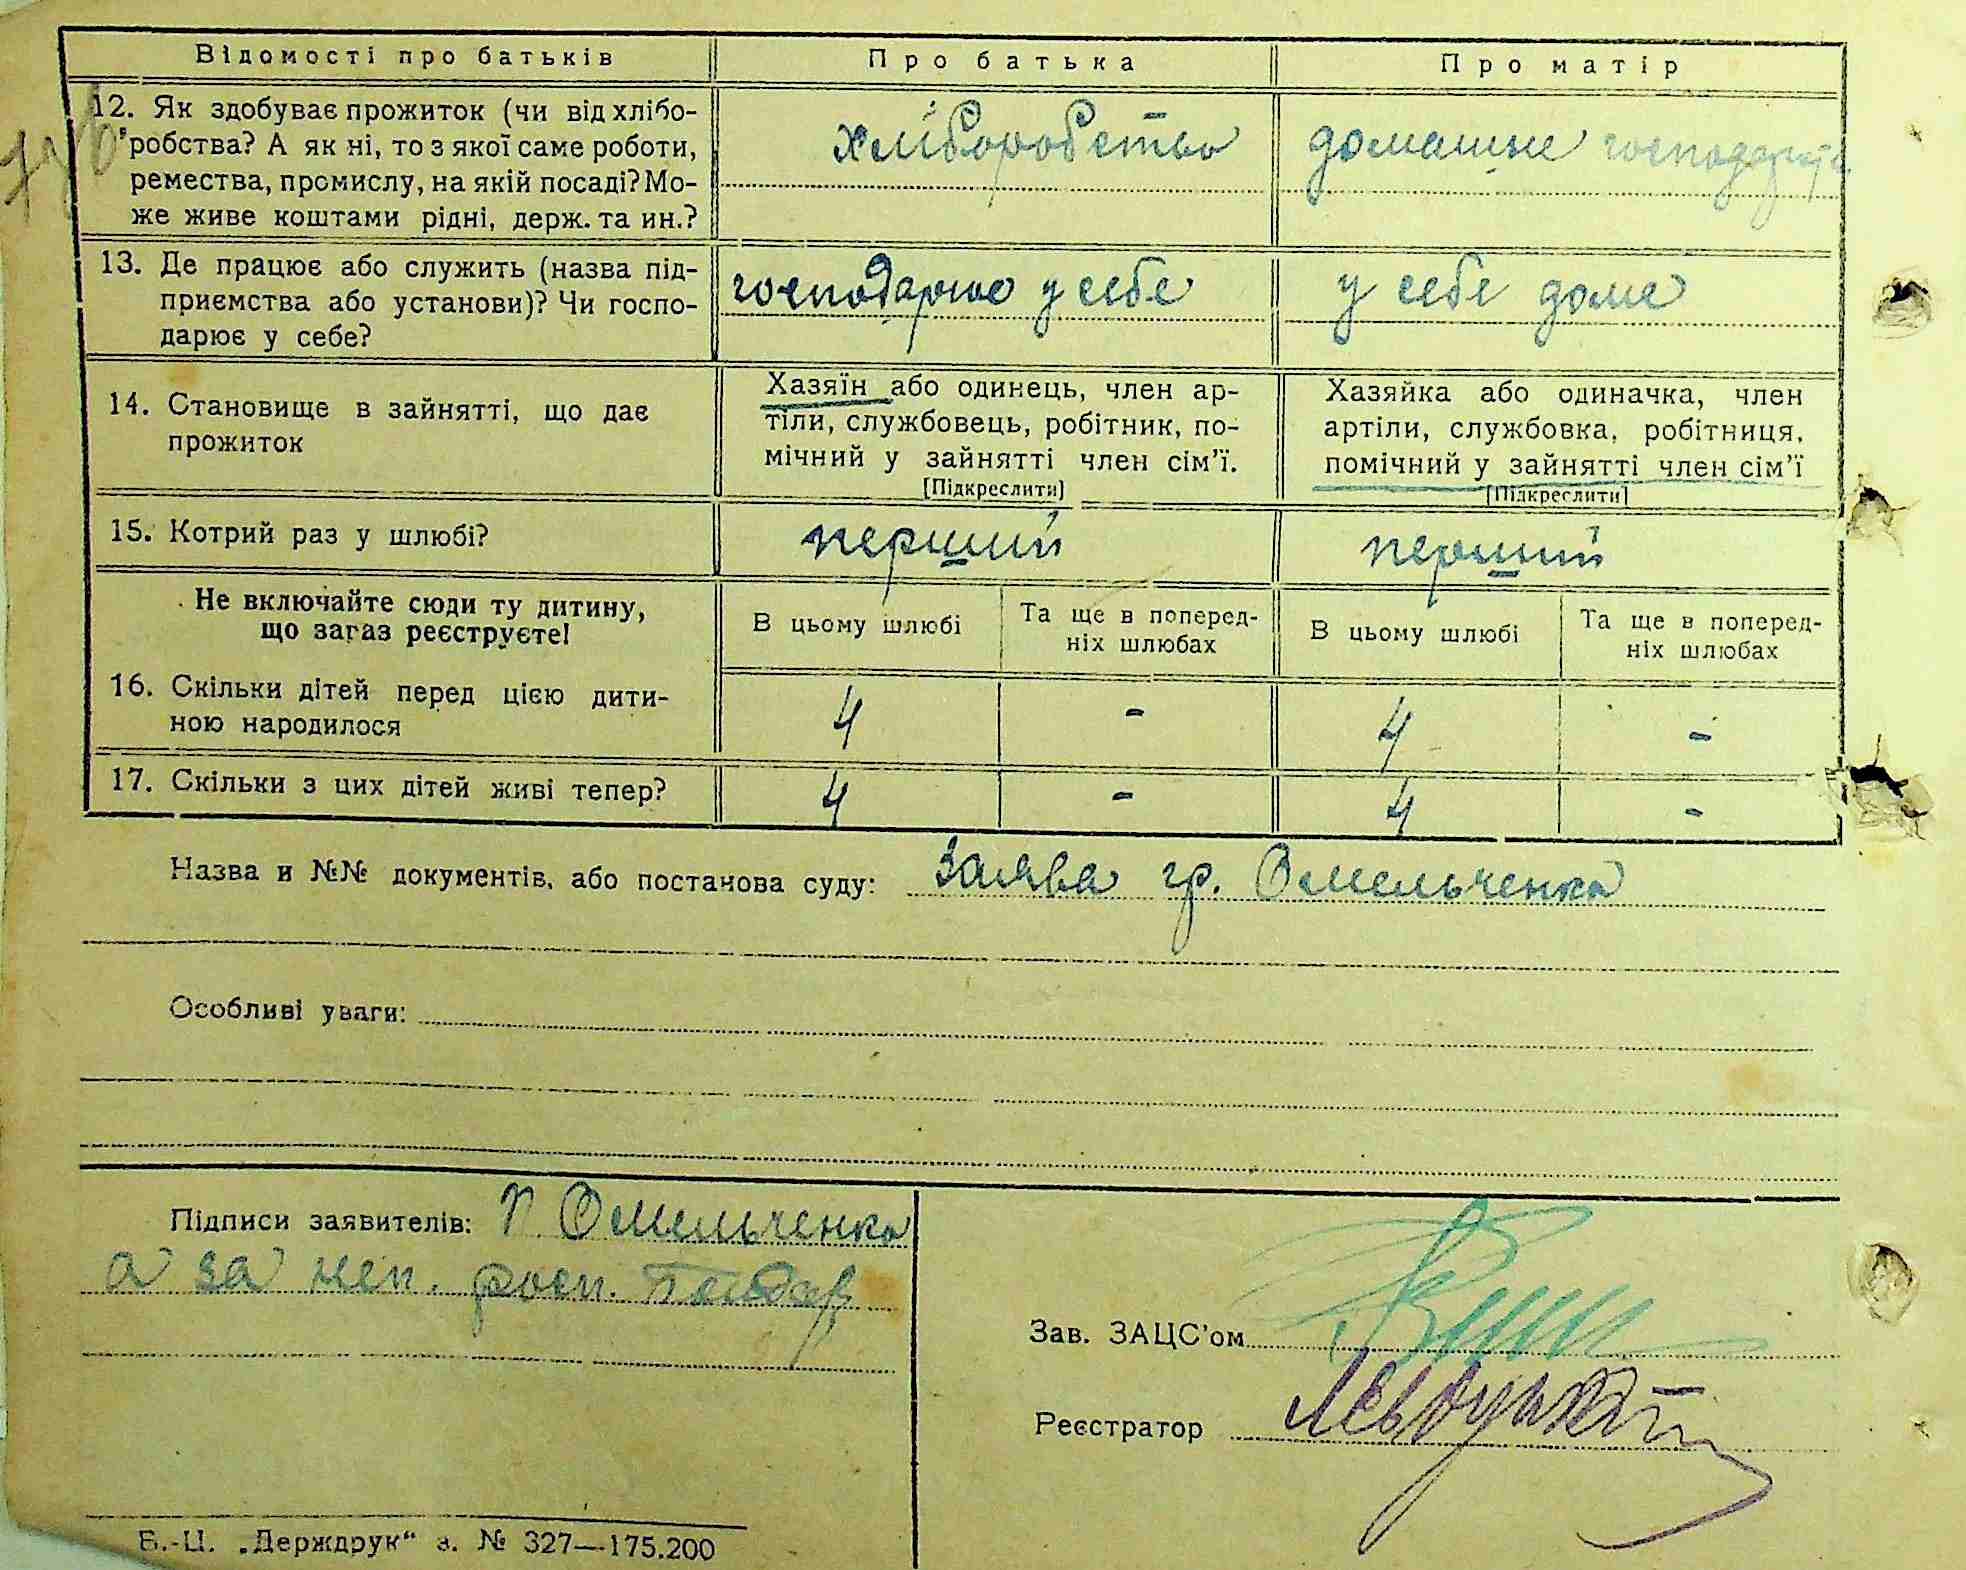 Відомості про батьків
Про батька
Про матір
12. Як здобуває прожиток (чи від хлібо-
робства? А як ні, то з якої саме роботи,
ремества, промислу, на якій посаді? Мо-
же живе коштами рідні, держ. та ин.?
хліборобство
домашнє господарств
13. Де працює або служить (назва під-
приємства або установи)? Чи госпо-
дарює у себе?
господарює у себе
у себе доме
14. Становище в зайнятті, що дає
прожиток
Хазяїн або одинець, член ар-
тіли, службовець, робітник, по-
мічний у зайнятті член сім'ї.
[Підкреслити]
Хазяйка або одиначка, член
артіли, службовка, робітниця,
помічний у зайнятті член сім'ї
[Підкреслити]
15. Котрий раз у шлюбі?
перший
перший
Не включайте сюди ту дитину,
що зараз реєструєте!
В цьому шлюбі
Та ще в поперед-
ніх шлюбах
В цьому шлюбі
Та ще в поперед-
ніх шлюбах
16. Скільки дітей перед цією дити-
ною народилося
4
-
4
-
17. Скільки з цих дітей живі тепер?
4
-
4
-
Назва и №№ документів, або постанова суду: Заява гр. Омельченка
Особливі уваги:
Підписи заявителів: П Омельченко
а за неп. росп.
Зав. ЗАЦС'ом
Реєстратор
Б.-Ц. „Держдрук“ з. № 327—175.200